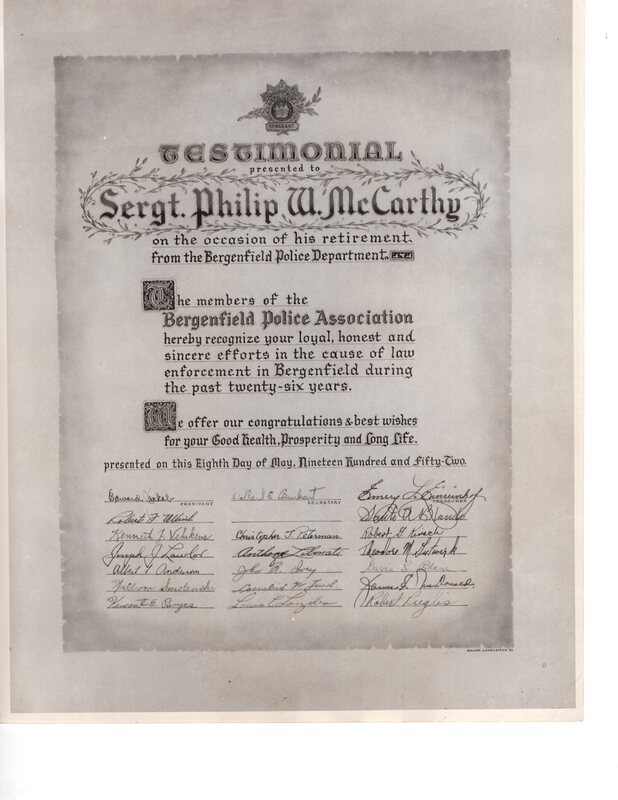 SERGEANT
TESTIMONIAL
presented to
Sergt. Philip W. McCarthy
on the occasion of his retirement
from the Bergenfield Police Department.
The members of the
Bergenfield Police Association
hereby recognize your loyal, honest and
sincere efforts in the cause of law
enforcement in Bergenfield during
the past twenty-six years.
We offer our congratulations & best wishes
for your Good Health, Prosperity and Long Life.
presented on this Eighth Day of May, Nineteen Hundred and Fifty-Two.
Edward Willard Emery
PRESIDENT SECRETARY TREASURER
Robert F.
Kenneth F. Christopher J. Peterman Robert G.
Joseph J. Theodore M.
Albert F. Anderson John R.
William Smolenski James
Vincent E. Boyce Louis Robert Puglis